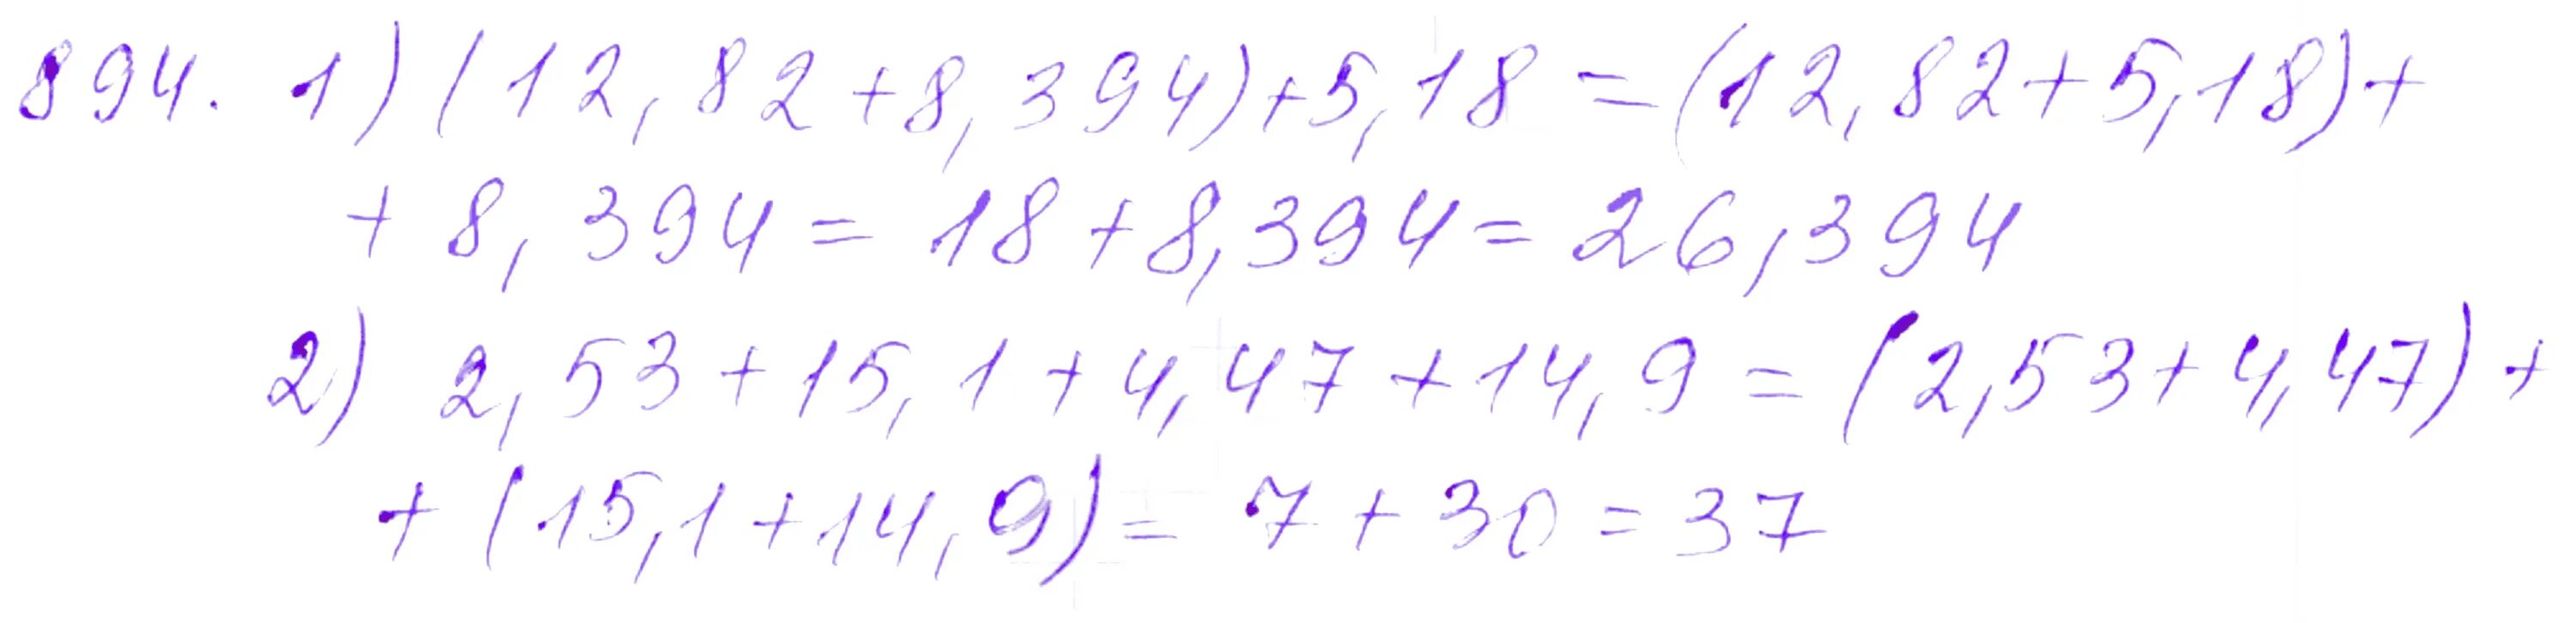 894. 1) (12,82+8,394)+5,18=(12,82+5,18)+
+8,394=18+8,394=26,394
2) 2,53+15,1+4,47+14,9=(2,53+4,47)+
+(15,1+14,9)=7+30=37